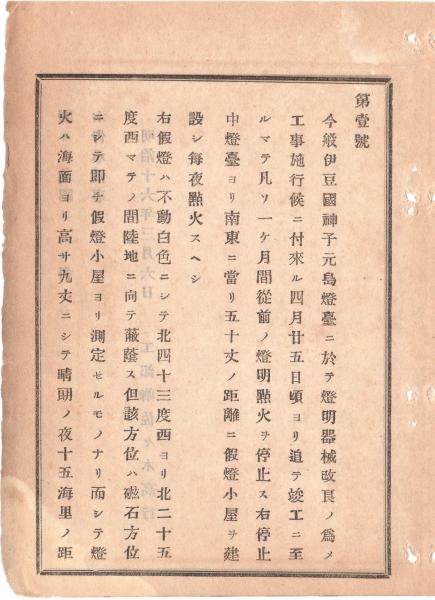 第壹號
今般伊豆國神子元島燈臺ニ於テ燈明器械改良ノ爲メ
工事施行候ニ付來ル四月廿五日頃ヨリ追テ竣工ニ至
ルマテ凡ソ一ケ月間從前ノ燈明點火ヲ停止ス右停止
中燈臺ヨリ南東ニ當リ五十丈ノ距離ニ假燈小屋ヲ建
設シ每夜點火スヘシ
右假燈ハ不動白色ニシテ北四十三度西ヨリ北二十五
度西マテノ間陸地ニ向テ蔽蔭ス但該方位ハ磁石方位
ニシテ即チ假燈小屋ヨリ測定セルモノナリ而シテ燈
火ハ海面ヨリ高サ九丈ニシテ晴朗ノ夜十五海里ノ距
明治十六年三月六日
工部卿佐々木高行